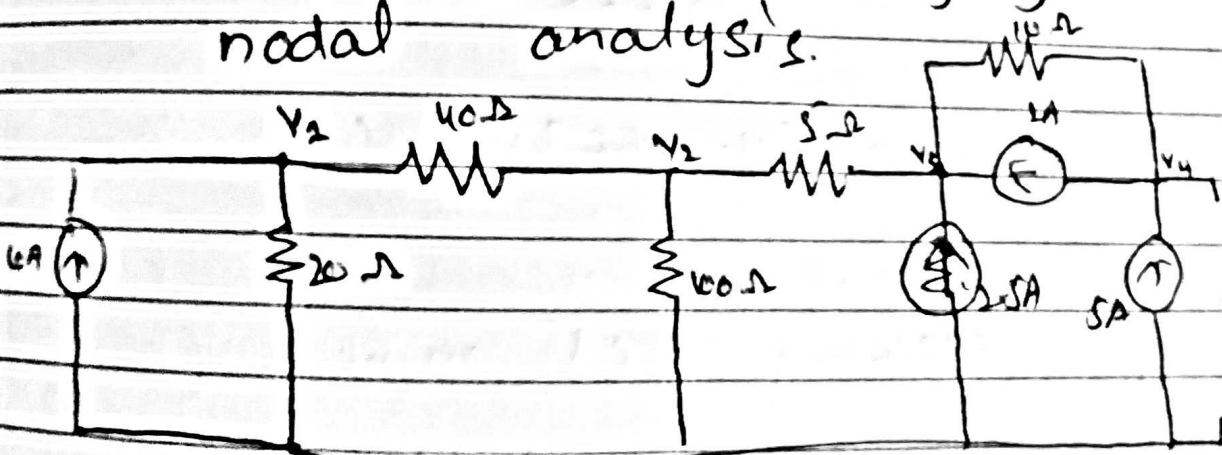 nodal analysis.
10 Ω
V₂ 40Ω V₂ 5Ω 2A
V₄
20 Ω 100 Ω 5A